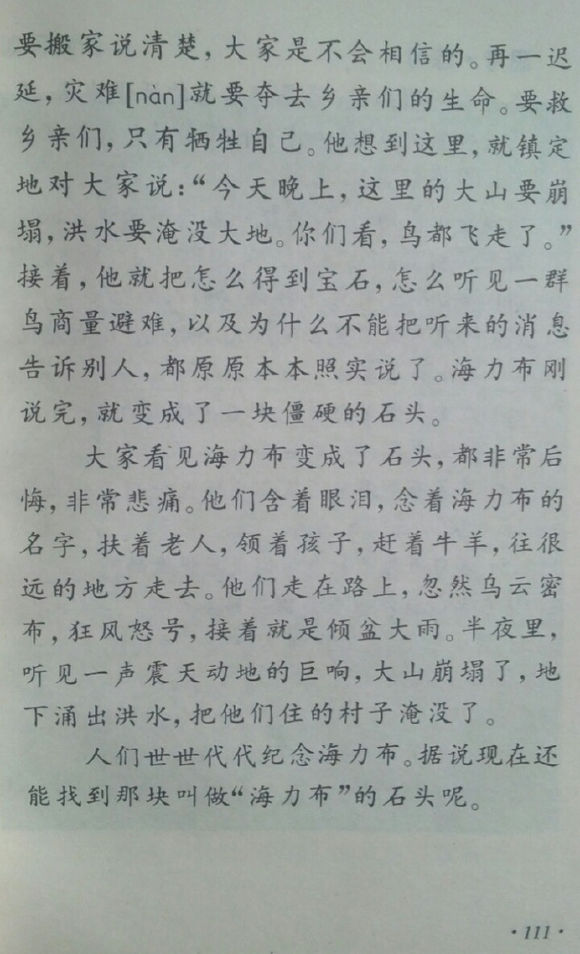 要搬家说清楚，大家是不会相信的。再一迟
延，灾难[nàn]就要夺去乡亲们的生命。要救
乡亲们，只有牺牲自己。他想到这里，就镇定
地对大家说：“今天晚上，这里的大山要崩
塌，洪水要淹没大地。你们看，鸟都飞走了。”
接着，他就把怎么得到宝石，怎么听见一群
鸟商量避难，以及为什么不能把听来的消息
告诉别人，都原原本本照实说了。海力布刚
说完，就变成了一块僵硬的石头。
大家看见海力布变成了石头，都非常后
悔，非常悲痛。他们含着眼泪，念着海力布的
名字，扶着老人，领着孩子，赶着牛羊，往很
远的地方走去。他们走在路上，忽然乌云密
布，狂风怒号，接着就是倾盆大雨。半夜里，
听见一声震天动地的巨响，大山崩塌了，地
下涌出洪水，把他们住的村子淹没了。
人们世世代代纪念海力布。据说现在还
能找到那块叫做“海力布”的石头呢。
·111·